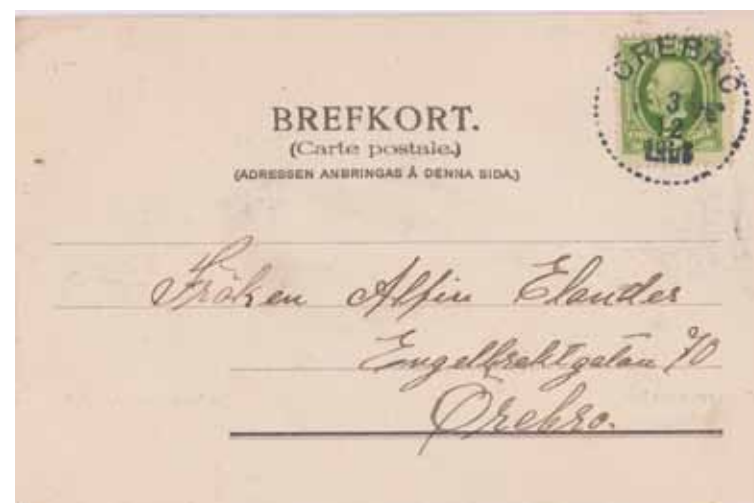 BREFKORT.
(Carte postale.)
(ADRESSEN ANBRINGAS Å DENNA SIDA.)
ÖREBRO
3
2
Fröken Alfin Elander
Engelbrektgatan 70
Örebro.